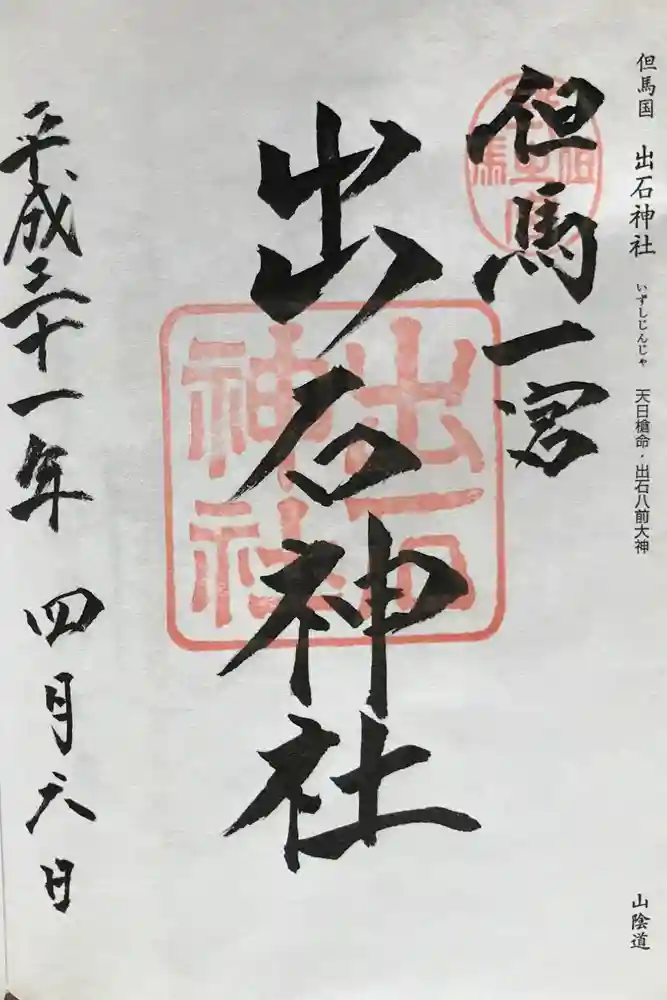 但馬国 出石神社 いずしじんじゃ 天日槍命・出石八前大神
山陰道
但馬一宮
出石神社
出石神社
平成三十一年 四月六日